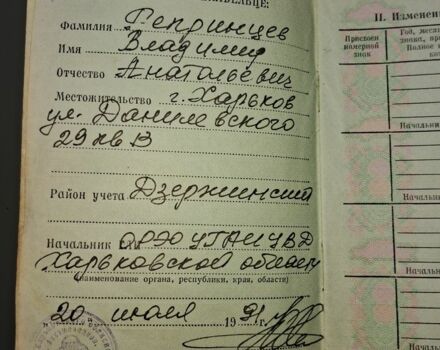 ВЛАДЕЛЬЦЕ:
Фамилия Репринцев
Имя Владимир
Отчество Анатольевич
Местожительство г. Харьков
ул. Данилевского
29 кв 13
Район учета Дзержинский
Начальник ОРЭО УГАИ УВД
Харьковской области
(наименование органа, республики, края, области)
20 июля 1991 г.
II. Изменени
Присвоен номерной знак
Год, меся
знака, пр
Полное
Начальни
Начальни
Начальн